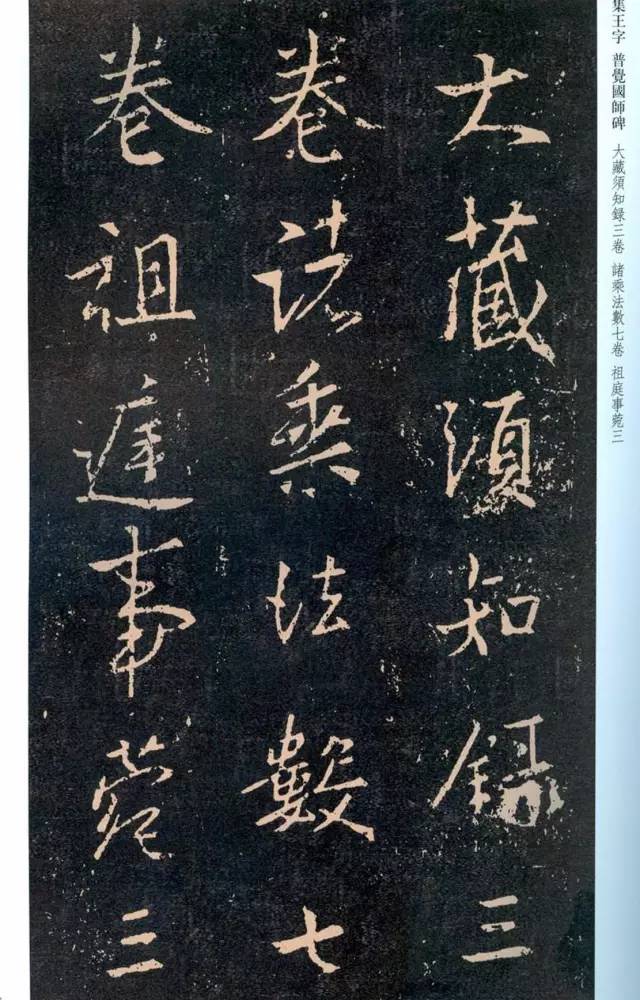 集王字 普覺國師碑 大藏須知録三卷 諸乘法數七卷 祖庭事菀三
大藏須知録三
卷諸乘法數七
卷祖庭事菀三